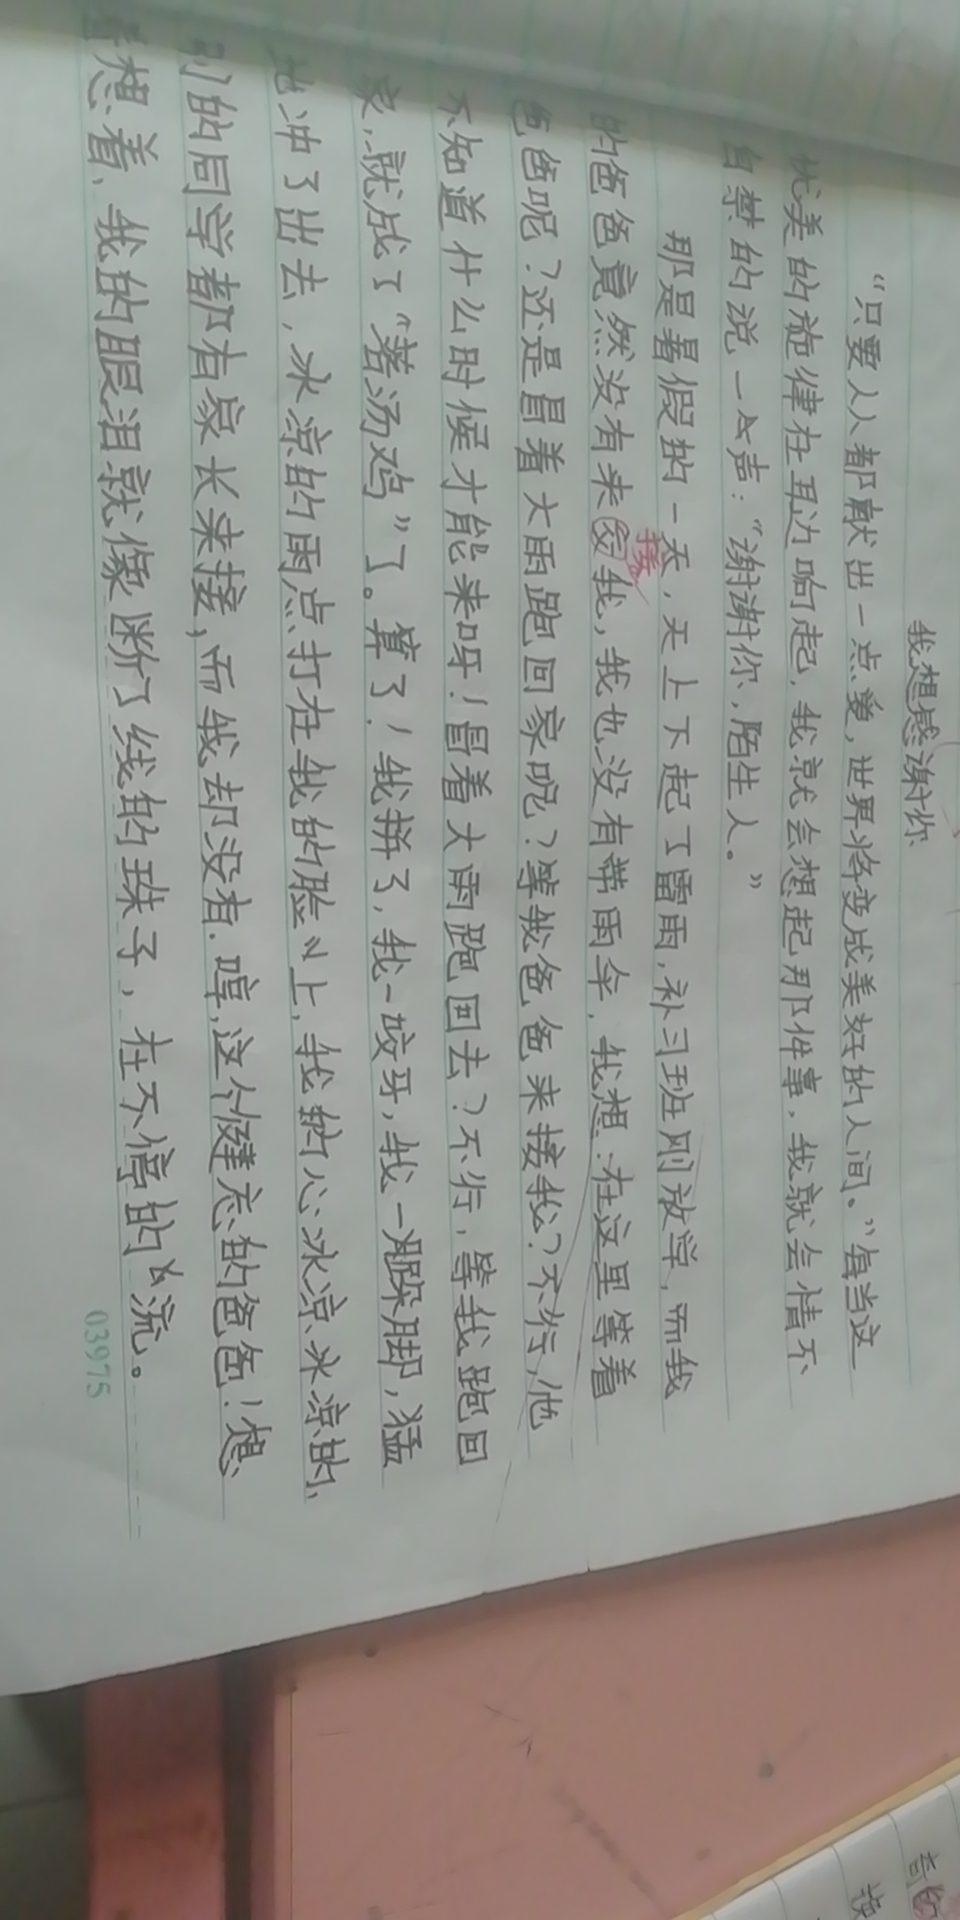 我想感谢你
“只要人人都献出一点爱，世界将变成美好的人间。”每当这
优美的旋律在耳边响起，我就会想起那件事，我就会情不
自禁的说一声：“谢谢你，陌生人。”
那是暑假的一天，天上下起了雷雨，补习班刚放学，而我
接
的爸爸竟然没有来我，我也没有带雨伞，我想：在这里等着
爸爸呢？还是冒着大雨跑回家呢？等我爸爸来接我？不行，他
不知道什么时候才能来呀！冒着大雨跑回去？不行，等我跑回
家，就成了“落汤鸡”了。算了！我拼了，我一咬牙，我一跺脚，猛
地冲了出去，冰凉的雨点打在我的脸上，我的心冰凉冰凉的，
别的同学都有家长来接，而我却没有．哼，这个健忘的爸爸！想
着想着，我的眼泪就像断了线的珠子，在不停的流。
03975